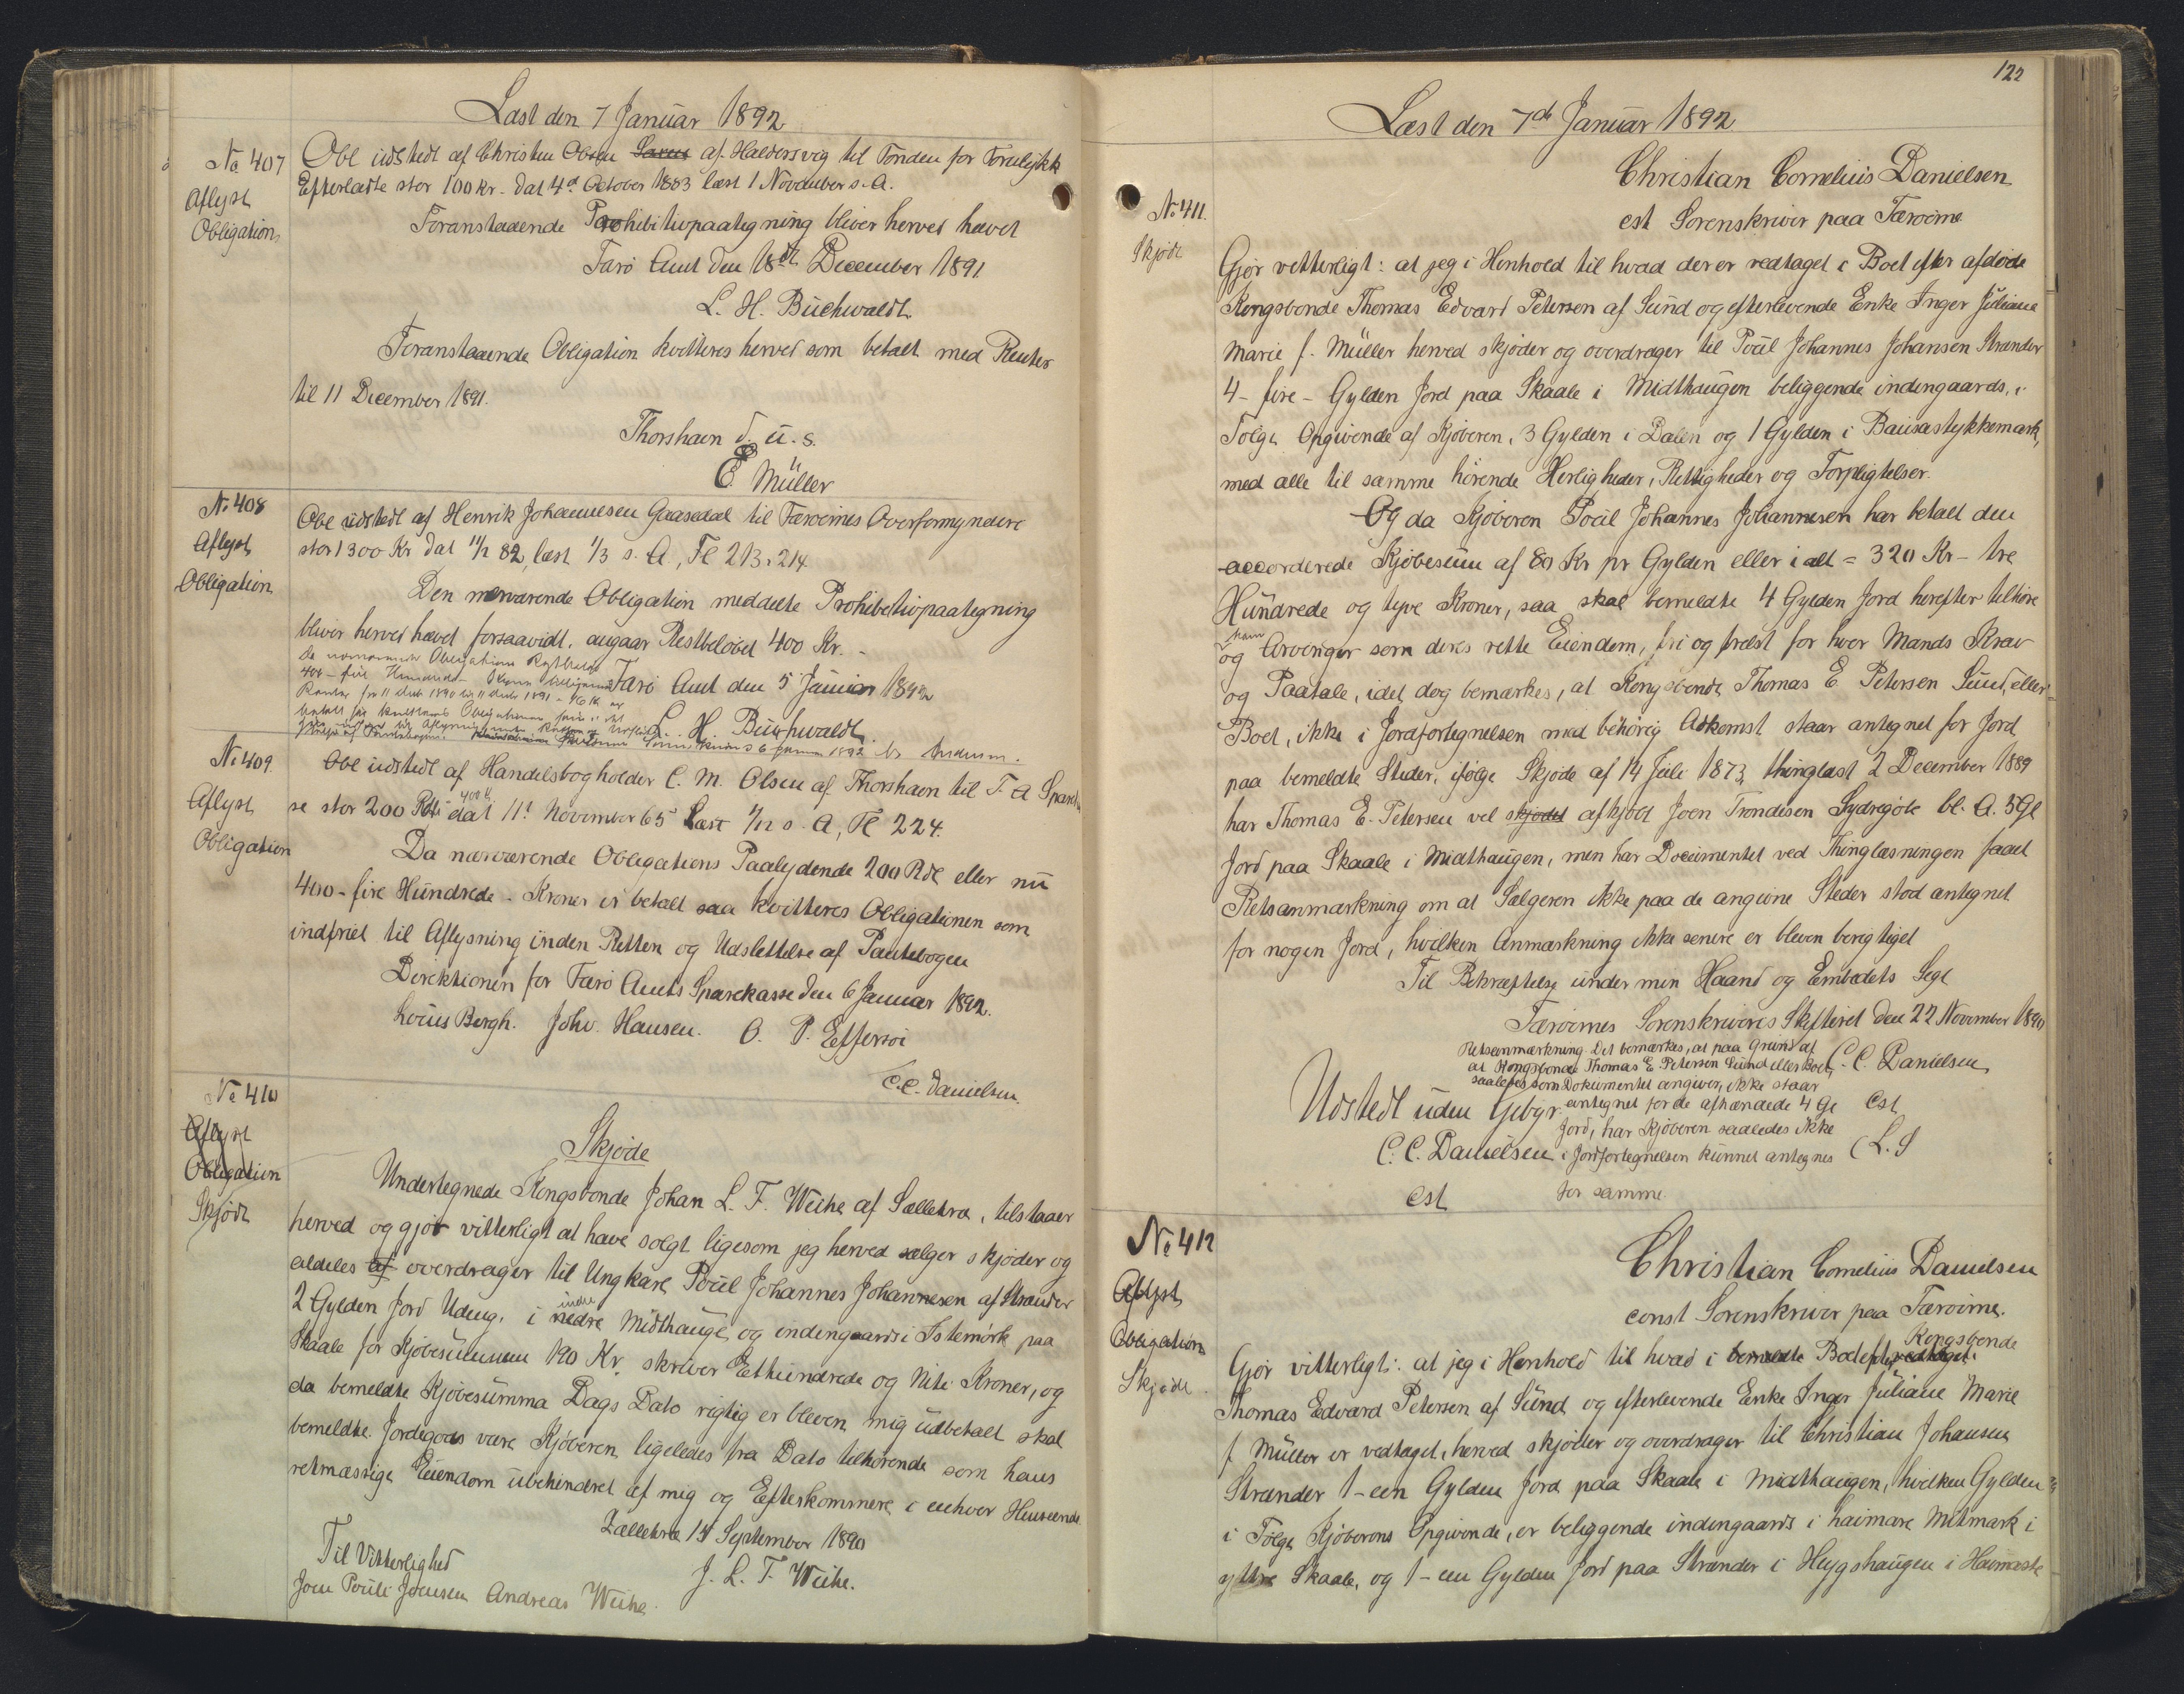 Læst den 7 Januar 1892
No 407
Aflyst
Obligation
Obl udstedt af Christen Olsen Saxus af Haldersvig til Fonden for Forulykk
Efterladte stor 100 Kr. dat 4d October 1883 læst 1 November s. A.
Foranstaaende Prohibitivpaategning bliver herved hævet
Færø Amt den 18de December 1891
L. H. Buchwaldt
Foranstaaende Obligation kvitteres herved som betalt med Renter
til 11 December 1891.
Thorshavn d. u. s.
E. Müller
No 408
Aflyst
Obligation
Obl udstedt af Henrik Johannesen Gaasedal til Færøernes Overformynderi
stor 1300 Kr dat 11/12 82, læst 1/3 s. A, Fl 213. 214.
Den nærværende Obligation meddelte Prohibitivpaategning
bliver herved hævet forsaavidt. angaar Restbeløbet 400 Kr.
Da nærværende Obligations Restbeløb
400 - fire Hundrede - Kroner tilligemed
Renter fra 11 Decb 1890 til 11 Decb 1891 - 16 Kr er
betalt saa kvitteres Obligationen
Færø Amt den 5 Januar 1892
L. H. Buchwaldt
6 Januar 1892
No 409.
Aflyst
Obligation
Obl udstedt af Handelsbogholder C. M. Olsen af Thorshavn til F. A Sparek
se stor 200 Rdl 400 K dat 11t November 65 Læst 1/12 s. A, Fl 224.
Da nærværende Obligations Paalydende 200 Rdl eller nu
400 - fire Hundrede - Kroner er betalt saa kvitteres Obligationen som
indfriet til Aflysning inden Retten og Udslettelse af Pantebogen
Direktionen for Færø Amts Sparekasse den 6 Januar 1892.
Louis Bergh. Johs. Hansen. O. P. Effersøi
C. C. Danielsen.
No 410
Aflyst
Obligation
Skjøde
Skjøde
Undertegnede Kongsbonde Johan L. F. Weihe af Sælletræ, tilstaaer
herved og gjør vitterligt at have solgt ligesom jeg herved sælger skjøder og
aldeles af overdrager til Ungkarl Poul Johannes Johannesen af Strænder
2 Gylden Jord Udeng. i nedre indre Midthauge, og indengaards i Istemørk paa
Skaale for Kjøbesummen 190 Kr. skriver Ethundrede og Niti Kroner, og
da bemeldte Kjøbesumma Dags Dato rigtig er bleven mig udbetalt skal
bemeldte. Jordegods være Kjøberen ligeledes fra Dato tilhørende som hans
retmæssige Eiendom ubehindret af mig og Efterkommere i enhver Henseende.
Zælletræ 14 September 1890
J. L. F. Weihe.
Til Vitterlighed
Joen Pouli Joensen Andreas Weihe.
122
Læst den 7de Januar 1892
No 411.
Skjøde
Christian Cornelius Danielsen
cst Sorenskriver paa Færøerne
Gjør vitterligt: at jeg i Henhold til hvad der er vedtaget i Boet efter afdøde
Kongsbonde Thomas Edvard Petersen af Sund og efterlevende Enke Inger Juliane
Marie f. Müller herved skjøder og overdrager til Poul Johannes Johansen Strænder
4 - fire - Gylden Jord paa Skaale i Midthaugen beliggende indengaards, i
Følge Opgivende af Kjøberen, 3 Gylden i Dalen og 1 Gylden i Bausastykkemark,
med alle til samme hørende Herligheder, Rettigheder og Forpligtelser.
Og da Kjøberen Poul Johannes Johannesen har betalt den
accorderede Kjøbesum af 80 Kr pr Gylden eller i alt = 320 Kr - tre
Hundrede og tyve Kroner, saa skal bemeldte 4 Gylden Jord herefter tilhøre
ham
og Arvinger som deres rette Eiendom, fri og frelst for hver Mands Krav
og Paatale, idet dog bemærkes, at Kongsbonde Thomas E Petersen Sund, eller
Boet, ikke i Jordfortegnelsen med behørig Adkomst staar antegnet for Jord
paa bemeldte Steder, ifølge Skjøde af 14 Juli 1873, thinglæst 2 December 1889
har Thomas E. Petersen vel skjødet afkjøbt Joen Trondesen Sydregøte bl. A. 5 Gl
Jord paa Skaale i Midthaugen, men har Documentet ved Thinglæsningen faaet
Retsanmærkning om at Sælgeren ikke paa de angivne Steder stod antegnet
for nogen Jord, hvilken Anmærkning ikke senere er bleven berigtiget
Til Bekræftelse under min Haand og Embedets Segl
Færøernes Sorenskriveris Skifteret den 22 November 1890
C. C. Danielsen
cst
(L. S
Retsanmærkning. Det bemærkes, at paa Grund af
at Kongsbonde Thomas E Petersen Sund eller Boet,
saaledes som Dokumentet angiver, ikke staar
antegnet for de afhændede 4 Gl
Jord, har Kjøberen saaledes ikke
i Jordfortegnelsen kunnet antegnes
for samme.
Udstedt uden Gebyr.
C. C. Danielsen
cst
No 412
Aflyst
Obligation
Skjøde.
Christian Cornelius Danielsen
const Sorenskriver paa Færøerne.
Gjør vitterligt: at jeg i Henhold til hvad i bemeldte Boet efter vedtaget Kongsbonde
Thomas Edvard Petersen af Sund og efterlevende Enke Inger Juliane Marie
f Müller er vedtaget, herved skjøder og overdrager til Christian Johansen
Strænder 1 - een Gylden Jord paa Skaale i Midthaugen, hvilken Gylden
i Følge Kjøberens Opgivende, er beliggende indengaards i haimare Mitmark i
ytre Skaale, og 1 - een Gylden Jord paa Strænder i Heygshaugen i Haimaste